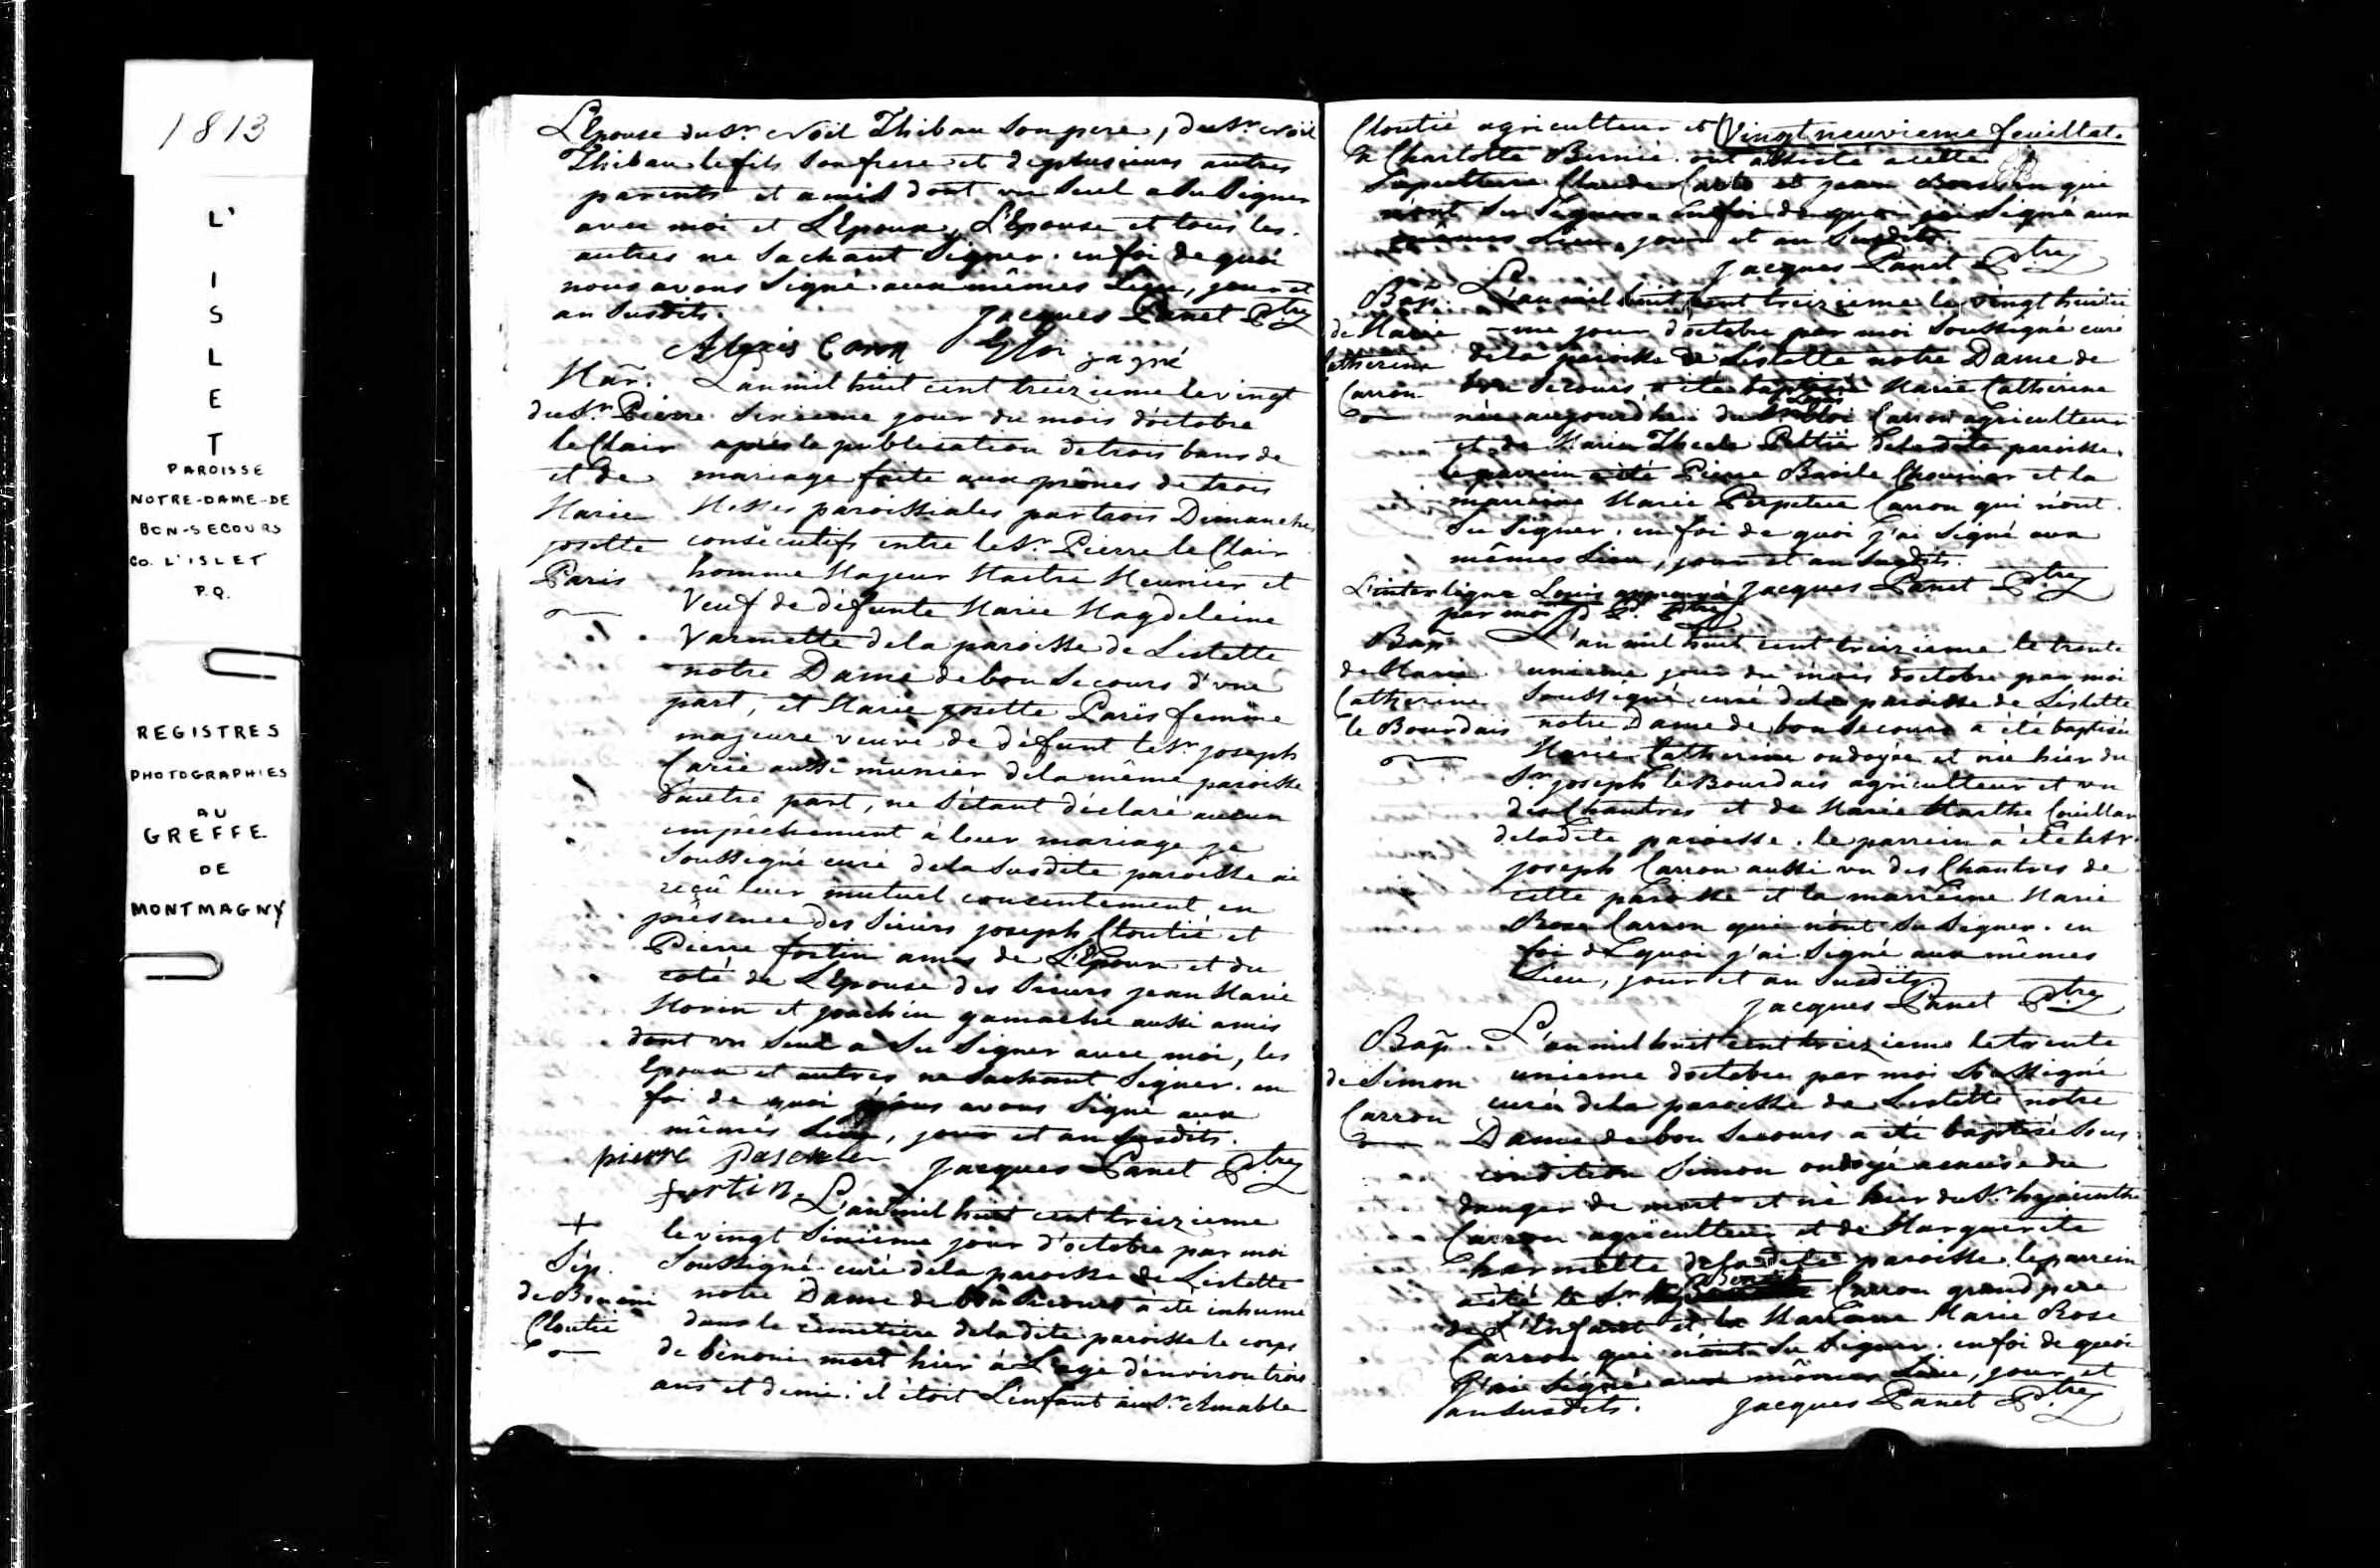 1813
L'
I
S
L
E
T
PAROISSE
NOTRE-DAME-DE
BON-SECOURS
CO. L'ISLET
P.Q.
REGISTRES
PHOTOGRAPHIES
AU
GREFFE
DE
MONTMAGNY
L'Epouse du Sr. Noël Thibau son pere, du Sr. Noël
Thibau le fils son frere et de plusieurs autres
parents et amis dont un seul a su signer
avec moi et L'Epoux, L'Epouse et tous les
autres ne sachant signer. en foi de quoi
nous avons signé aux mêmes Lieu, jour et
an susdits. jacques Panet Ptre
Alexis Caron Eloi gagné
Mar. L'an mil huit cent treizieme le vingt
du Sr. Pierre sixieme jour du mois d'octobre
le Clair après la publication de trois bans de
et de mariage faite aux prônes de trois
Marie Messes paroissiales par trois Dimanches
josette consécutifs entre le Sr. Pierre le Clair
Paris homme Majeur Maitre Meunier et
Veuf de défunte Marie Magdeleine
Varmette de la paroisse de Lislette
notre Dame de bon Secours d'une
part, et Marie josette Paris femme
majeure veuve de défunt le Sr. joseph
Carié aussi munier de la même paroisse
d'autre part, ne s'étant déclaré aucun
empêchement à leur mariage je
soussigné curé de la susdite paroisse ai
reçû leur mutuel concentement en
présence des sieurs joseph Cloutié et
Pierre fortin amis de L'Epoux et du
coté de L'Epouse des sieurs jean Marie
Morin et joachin gamache aussi amis
dont un seul a su signer avec moi, les
Epoux et autres ne sachant signer. en
foi de quoi nous avons signé aux
mêmes Lieu, jour et an susdits.
pierre jacques Panet Ptre
fortin.
+ L'an mil huit cent treizieme
le vingt sixième jour d'octobre par moi
Sép. soussigné curé de la paroisse de Lislette
de Benoni notre Dame de bon Secours a été inhumé
Cloutié dans le cemetière de la dite paroisse le corps
de bénoni mort hier à L'age d'environ trois
ans et demi. il étoit L'enfant du Sr. Amable
Cloutié agriculteur et Vingt neuvieme feuillet
de Charlotte Bernié. ont assisté a cette
sepulture Claude et jean qui
n'ont su signer. en foi de quoi j'ai signé aux
mêmes Lieu, jour et an susdits.
jacques Panet Ptre
Bap. L'an mil huit cent treizieme le vingt huitiè
de Marie -me jour d'octobre par moi soussigné curé
Catherine de la paroisse de Lislette notre Dame de
Carron bon Secours, a été baptisée Marie Catherine
Louis
née aujourd'hui du Sr. Eloi Carron agriculteur
et de Marie Thecle de la dite paroisse.
le parrein a été Pierre Basile et la
marreine Marie Perpetue Carron qui n'ont
su signer. en foi de quoi j'ai signé aux
mêmes Lieu, jour et an susdits.
L'interligne Louis approuvé jacques Panet Ptre
par moi J. P. Ptre
Bap. L'an mil huit cent treizieme le trente
de Marie unieme jour du mois d'octobre par moi
Catherine soussigné curé de la paroisse de Lislette
le Bourdais notre Dame de bon Secours a été baptisée
Marie Catherine ondoyée et née hier du
Sr. joseph le Bourdais agriculteur et un
des Chantres et de Marie Marthe Couillar
de la dite paroisse. le parrein a été le Sr.
joseph Carron aussi un des Chantres de
cette paroisse et la marreine Marie
Rose Carron qui n'ont su signer. en
foi de quoi j'ai signé aux mêmes
Lieu, jour et an susdits.
jacques Panet Ptre
Bap. L'an mil huit cent treizieme le trente
de Simon unieme d'octobre par moi soussigné
Carron curé de la paroisse de Lislette notre
Dame de bon Secours a été baptisé sous
condition Simon ondoyé a cause du
danger de mort et né hier du Sr. hyacinthe
Carron agriculteur et de Marguerite
Charmette de la dite paroisse. le parrein
a été le Sr. Carron grand pere
de L'Enfant et la Marreine Marie Rose
Carron qui n'ont su signer. en foi de quoi
j'ai signé aux mêmes Lieu, jour et
an susdits. jacques Panet Ptre